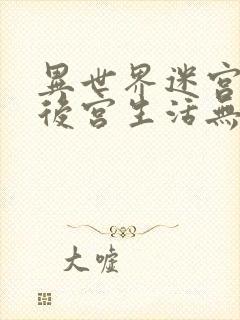 異世界迷宮
後宮生活無
大噓